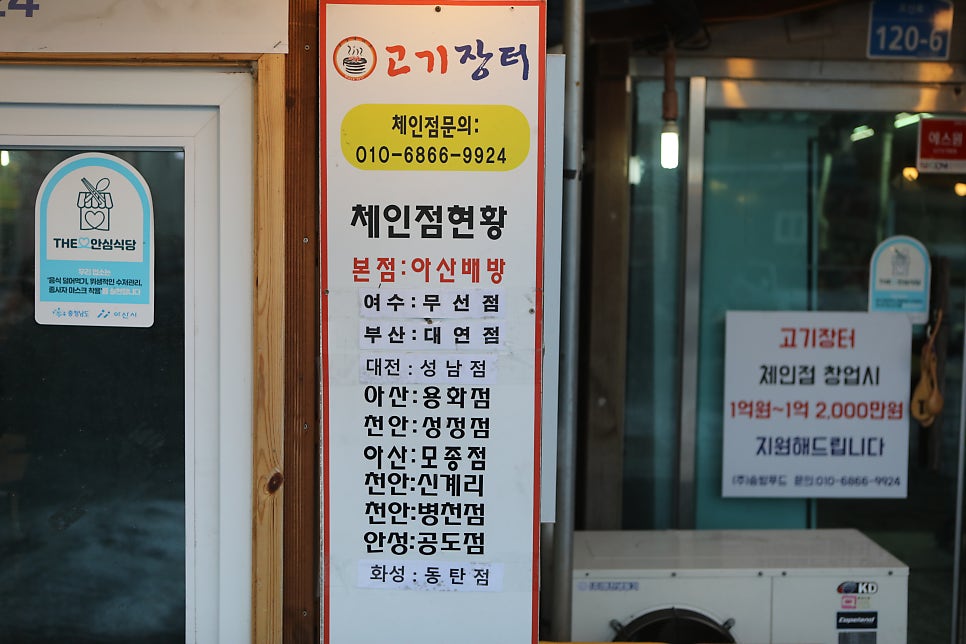 24
고기장터
체인점문의:
010-6866-9924
체인점현황
본점:아산배방
여수:무선점
부산:대연점
대전:성남점
아산:용화점
천안:성정점
아산:모종점
천안:신계리
천안:병천점
안성:공도점
화성:동탄점
THE 안심식당
우리 업소는
'음식 덜어먹기, 위생적인 수저관리,
종사자 마스크 착용'을 실천합니다.
충청남도 아산시
120-6
에스원
고기장터
체인점 창업시
1억원~1억 2,000만원
지원해드립니다
(주)솔밤푸드 문의:010-6866-9924
KD
Copeland